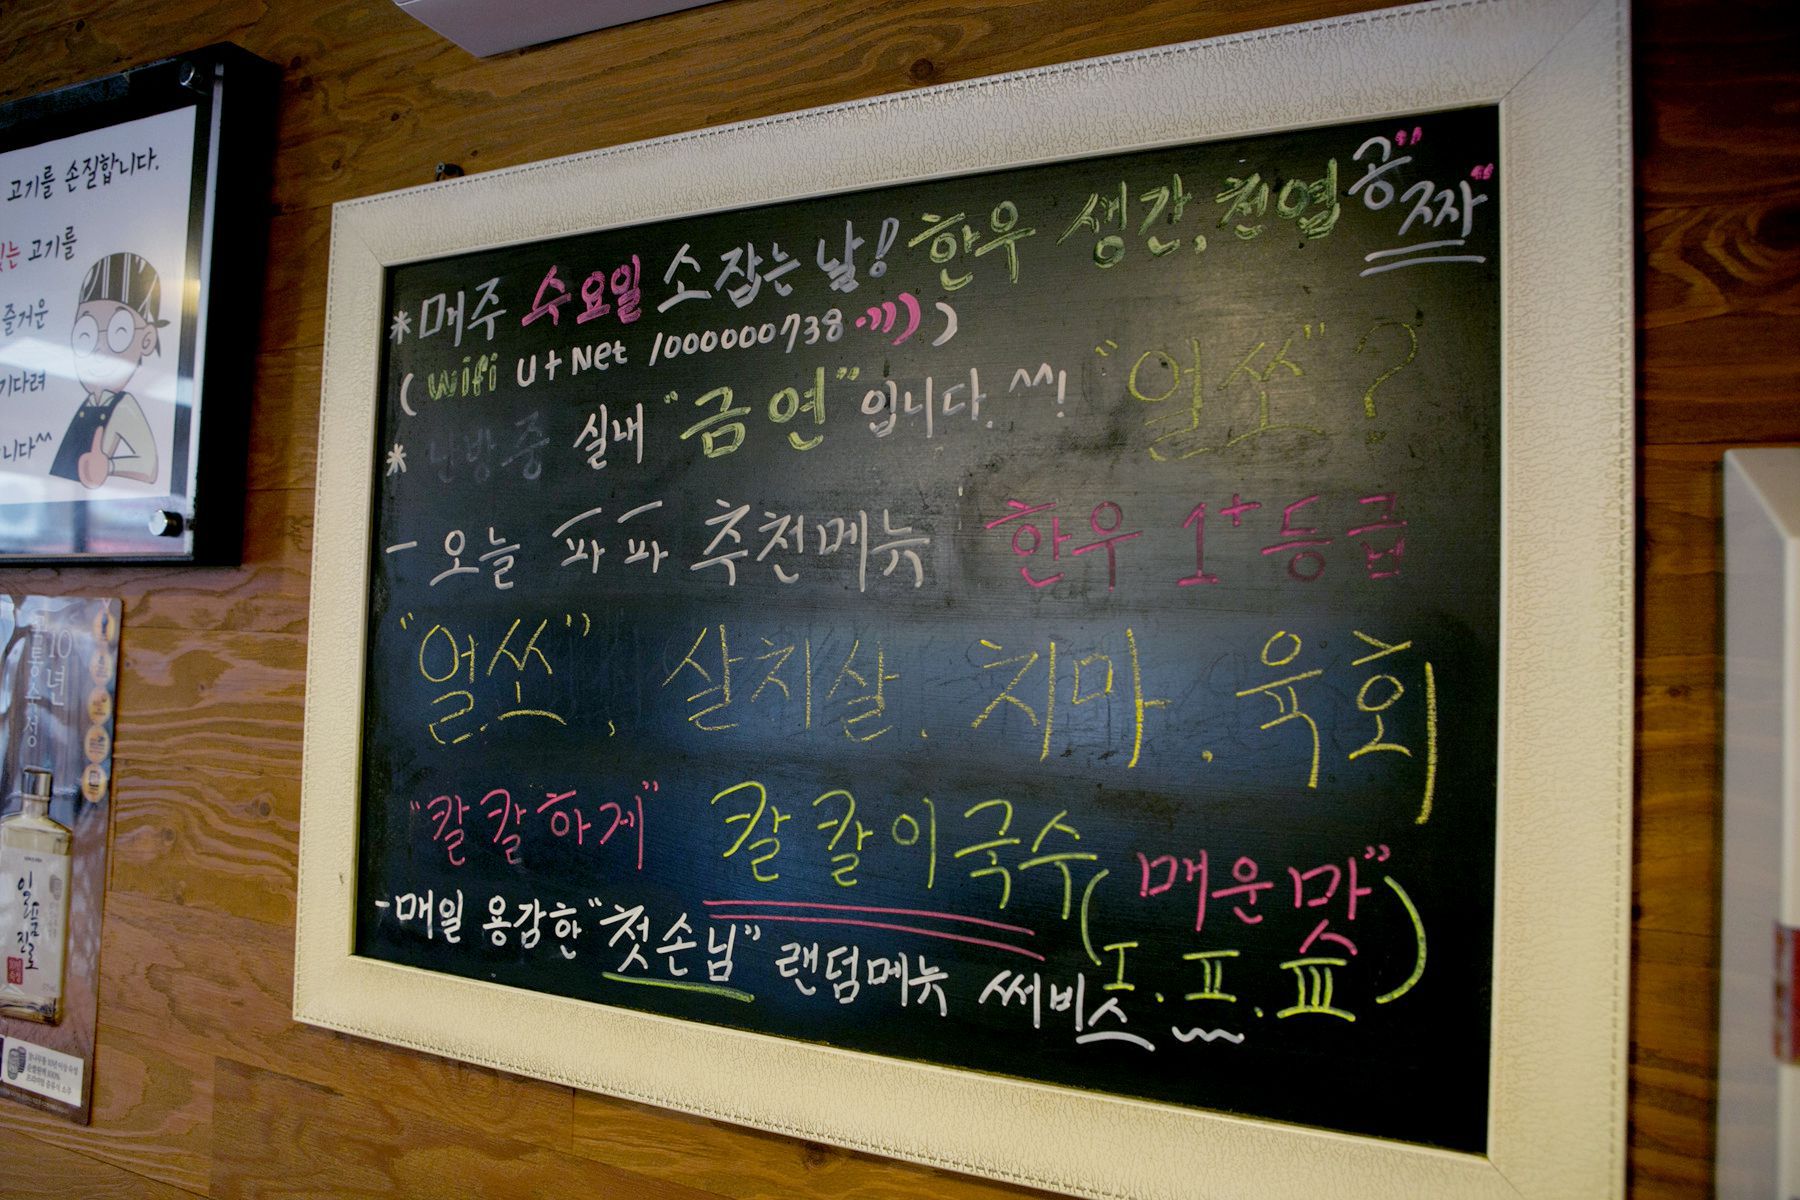 고기를 손질합니다.
있는 고기를
즐거운
기다려
니다^^
10년
일품
진로
* 매주 수요일 소 잡는 날! 한우 생간, 천엽 공짜
( Wifi U+Net 1000000738 )
* 난방중 실내 "금연" 입니다. ^^! "얼쑈"?
- 오늘 파파 추천메뉴 한우 1+ 등급
"얼쑈", 살치살, 치마, 육회
"칼칼하게" 칼칼이국수 ( 매운맛" I. II. III )
- 매일 용감한 "첫손님" 랜덤메뉴 써비스~